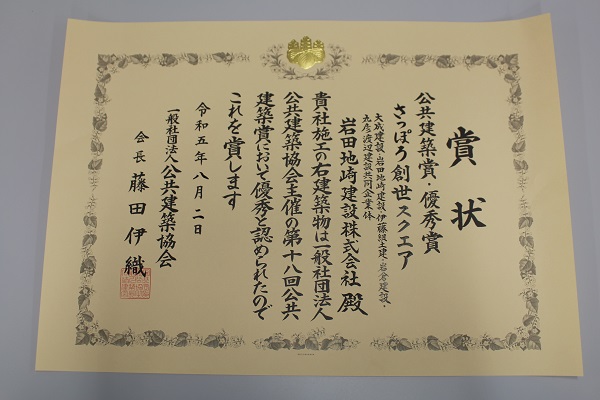 賞状
公共建築賞・優秀賞
さっぽろ創世スクエア
大成建設・岩田地崎建設・伊藤組土建・岩倉建設・
丸彦渡辺建設共同企業体
岩田地崎建設株式会社 殿
貴社施工の右建築物は一般社団法人
公共建築協会主催の第十八回公共
建築賞において優秀と認められたので
これを賞します
令和五年八月二日
一般社団法人公共建築協会
会長 藤田伊織